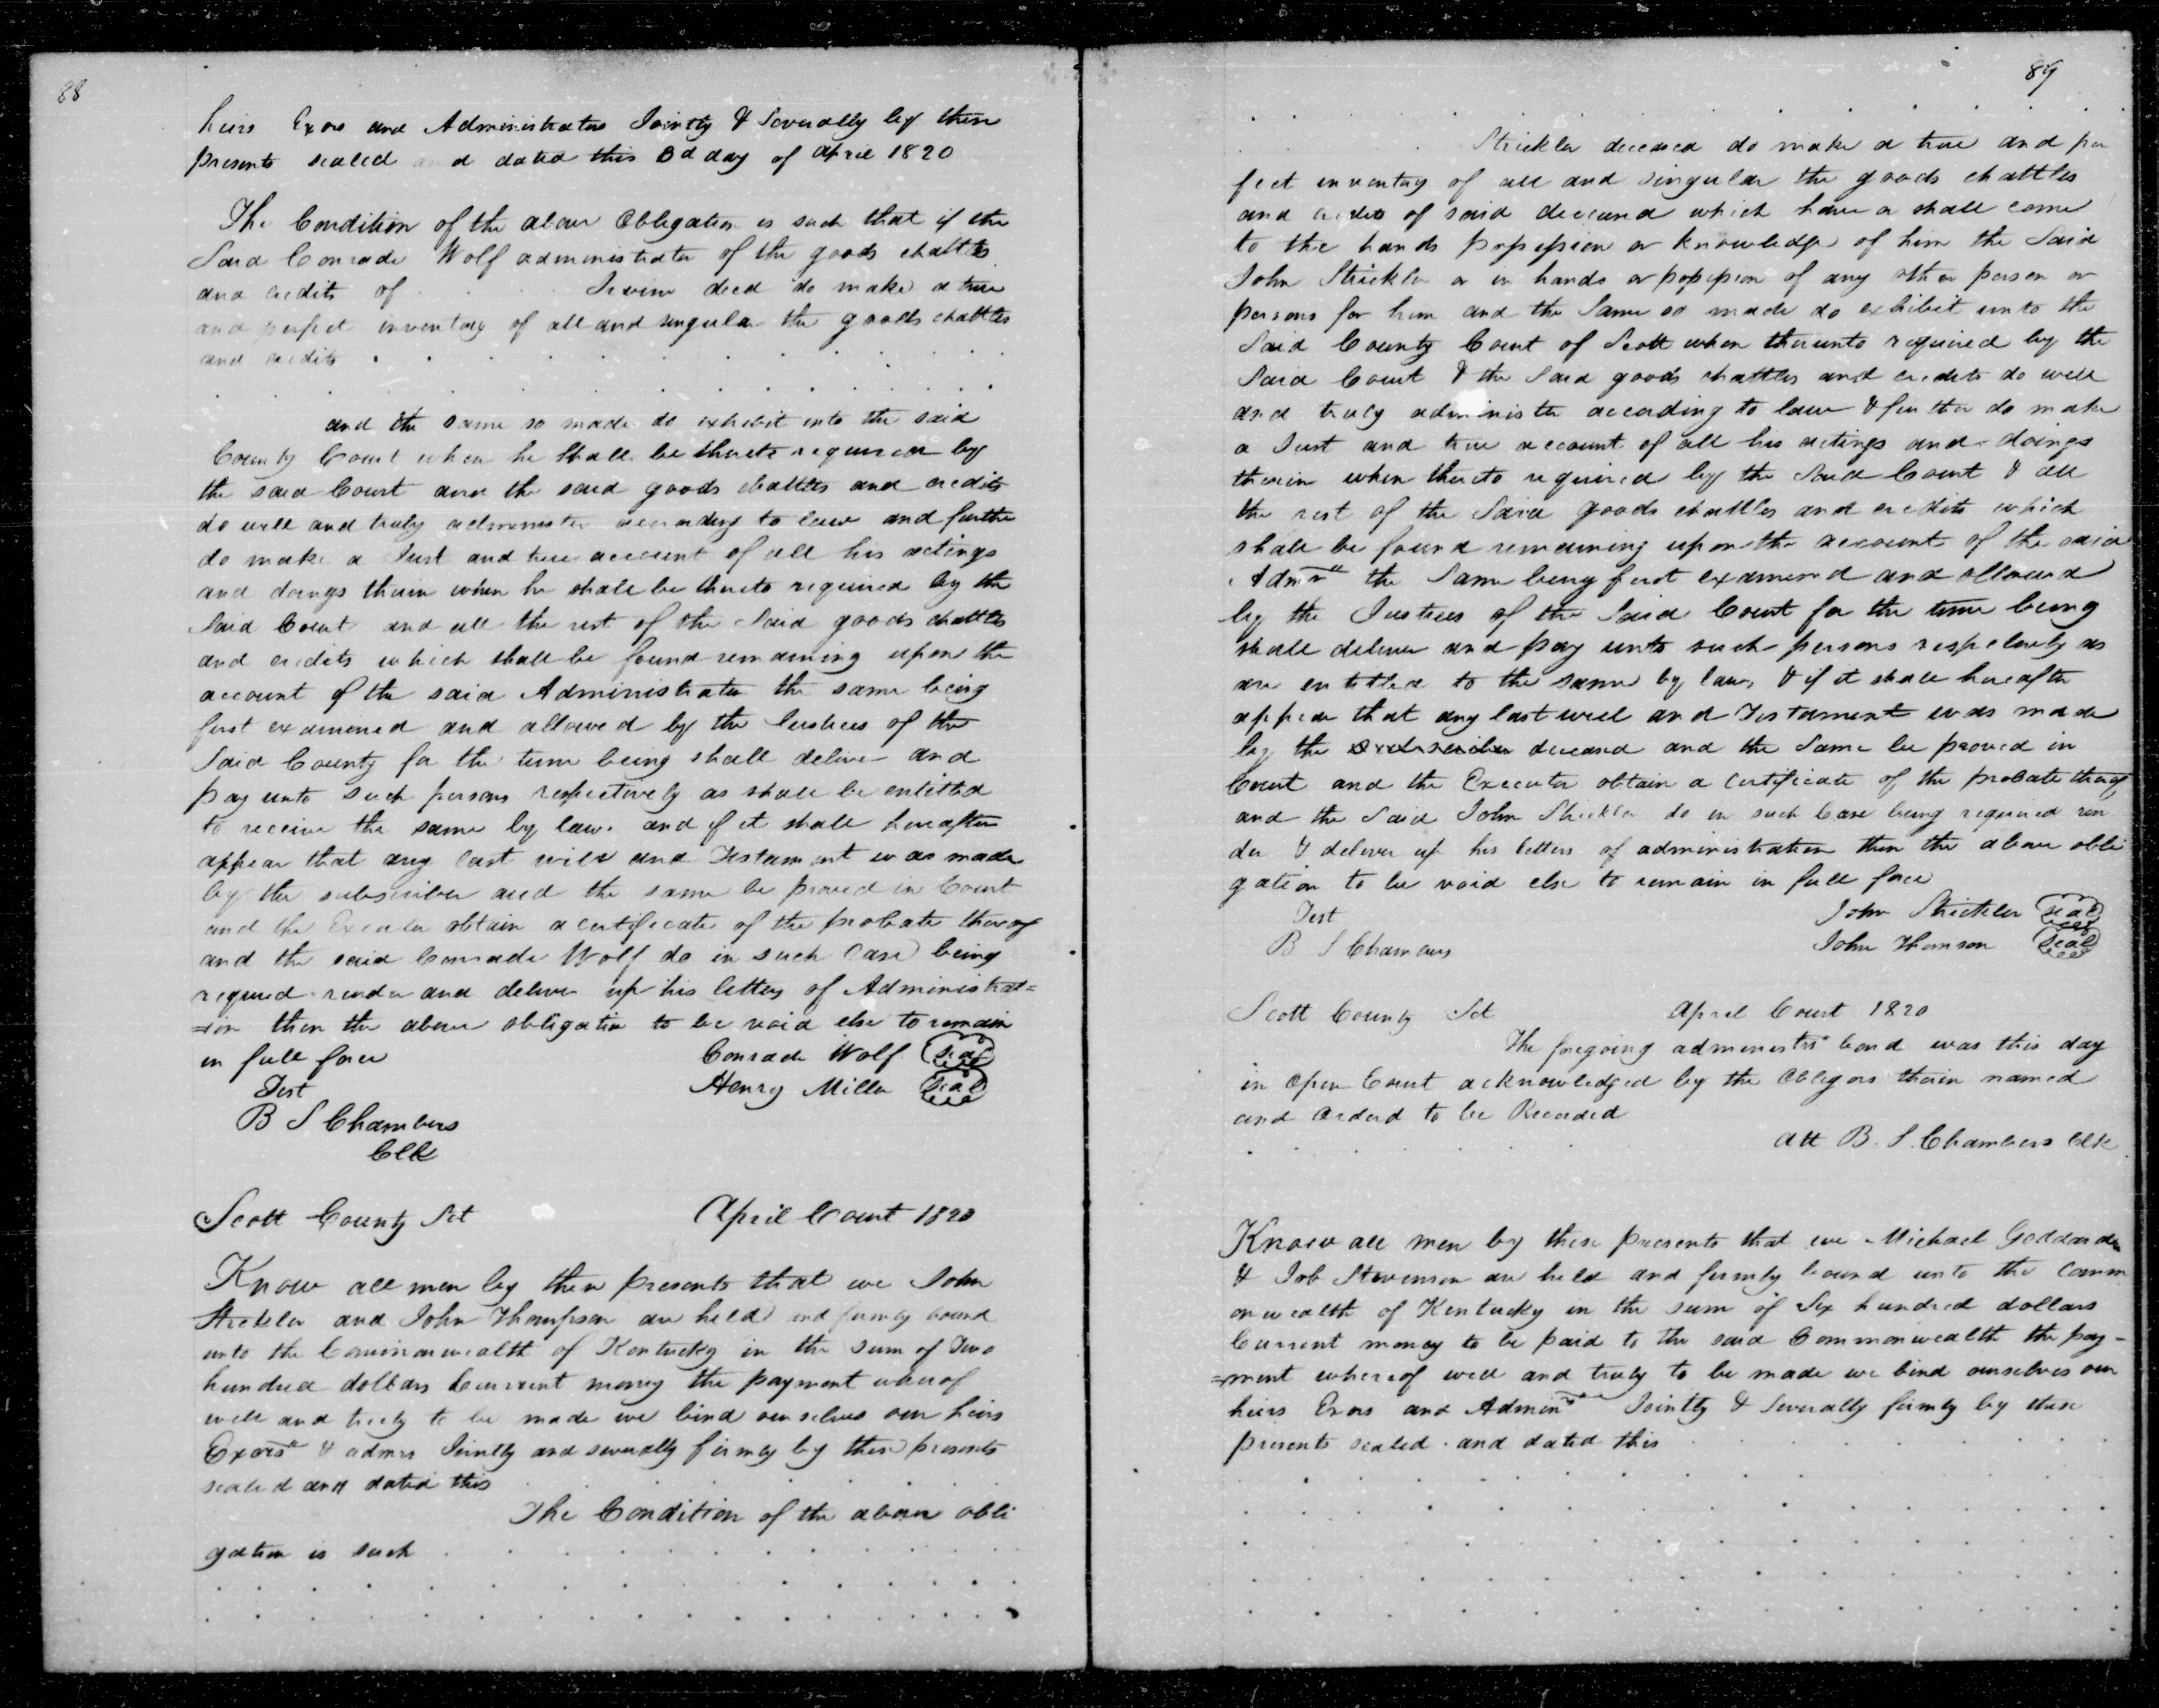 88
heirs Exors and Administrators Jointly & Severally by these
presents sealed and dated this 3d day of april 1820
The Condition of the above Obligation is such that if the
Said Conrade Wolf administrator of the goods chattles
and credits of . . . . Irvine decd do make a true
and perfect inventory of all and singular the goods chattles
and credits . . . . . . . . . . .
. . . . . . . . . . . . .
and the same so made do exhibit into the said
County Court when he shall be thereto required by
the said Court and the said goods chattles and credits
do well and truly administer according to law and further
do make a Just and true account of all his actings
and doings therein when he shall be thereto required by the
Said Court and all the rest of the Said goods chattles
and credits which shall be found remaining upon the
account of the said Administrator the same being
first examined and allowed by the Justices of the
Said County for the time being shall deliver and
pay unto such persons respectively as shall be entitled
to receive the same by law. and if it shall hereafter
appear that any last will and Testament was made
by the subscriber and the same be proved in Court
and the Executor obtain a certificate of the probate thereof
and the said Conrade Wolf do in such Case being
required render and deliver up his letters of Administrat=
=ion then the above obligation to be void else to remain
in full force Conrade Wolf seal
Test Henry Miller Seal
B S Chambers
Clk
Scott County Sct April Court 1820
Know all men by these presents that we John
Strickler and John Thompson are held and firmly bound
unto the Commonwealth of Kentucky in the sum of Two
hundred dollars Current money the payment whereof
well and truly to be made we bind ourselves our heirs
Exors & admrs Jointly and severally firmly by these presents
sealed and dated this . . . . . . . . .
The Condition of the above obli
gation is such . . . . . . . . . . .
. . . . . . . . . . . . . .
. . . . . . . . . . . . . .
89
. . . . . . . . . . . . . .
. . . . Strickler deceased do make a true and per
fect inventory of all and singular the goods chattles
and credits of said deceased which have or shall come
to the hands possession or knowledge of him the Said
John Strickler or in hands or possession of any other person or
persons for him and the Same so made do exhibit unto the
Said County Court of Scott when thereunto required by the
Said Court & the Said goods chattles and credits do well
and truly administer according to law & further do make
a Just and true account of all his actings and doings
therein when thereto required by the Said Court & all
the rest of the Said goods chattles and credits which
shall be found remaining upon the account of the said
Admr the Same being first examined and allowed
by the Justices of the Said Court for the time being
shall deliver and pay unto such persons respectively as
are entitled to the same by law, & if it shall hereafter
appear that any last will and Testament was made
by the subscriber deceased and the Same be proved in
Court and the Executor obtain a certificate of the probate thereof
and the Said John Strickler do in such Case being required ren
der & deliver up his letters of administration then the above obli
gation to be void else to remain in full force
Test John Strickler seal
B S Chambers John Thomson Seal
Scott County Sct April Court 1820
The foregoing administrs bond was this day
in Open Court acknowledged by the Obligors therein named
and Orderd to be Recorded
Att B. S. Chambers Clk
Know all men by these presents that we Michael Goddard
& Job Stevenson are held and firmly bound unto the Comm
onwealth of Kentucky in the sum of Six hundred dollars
Current money to be paid to the said Commonwealth the pay-
=ment whereof well and truly to be made we bind ourselves our
heirs Exors and Adminrs Jointly & Severally firmly by these
presents sealed and dated this . . . . . .
. . . . . . . . . . . . . .
. . . . . . . . . . . . . .
. . . . . . . . . . . . . .
. . . . . . . . . . . . . .
. . . . . . . . . . . . . .